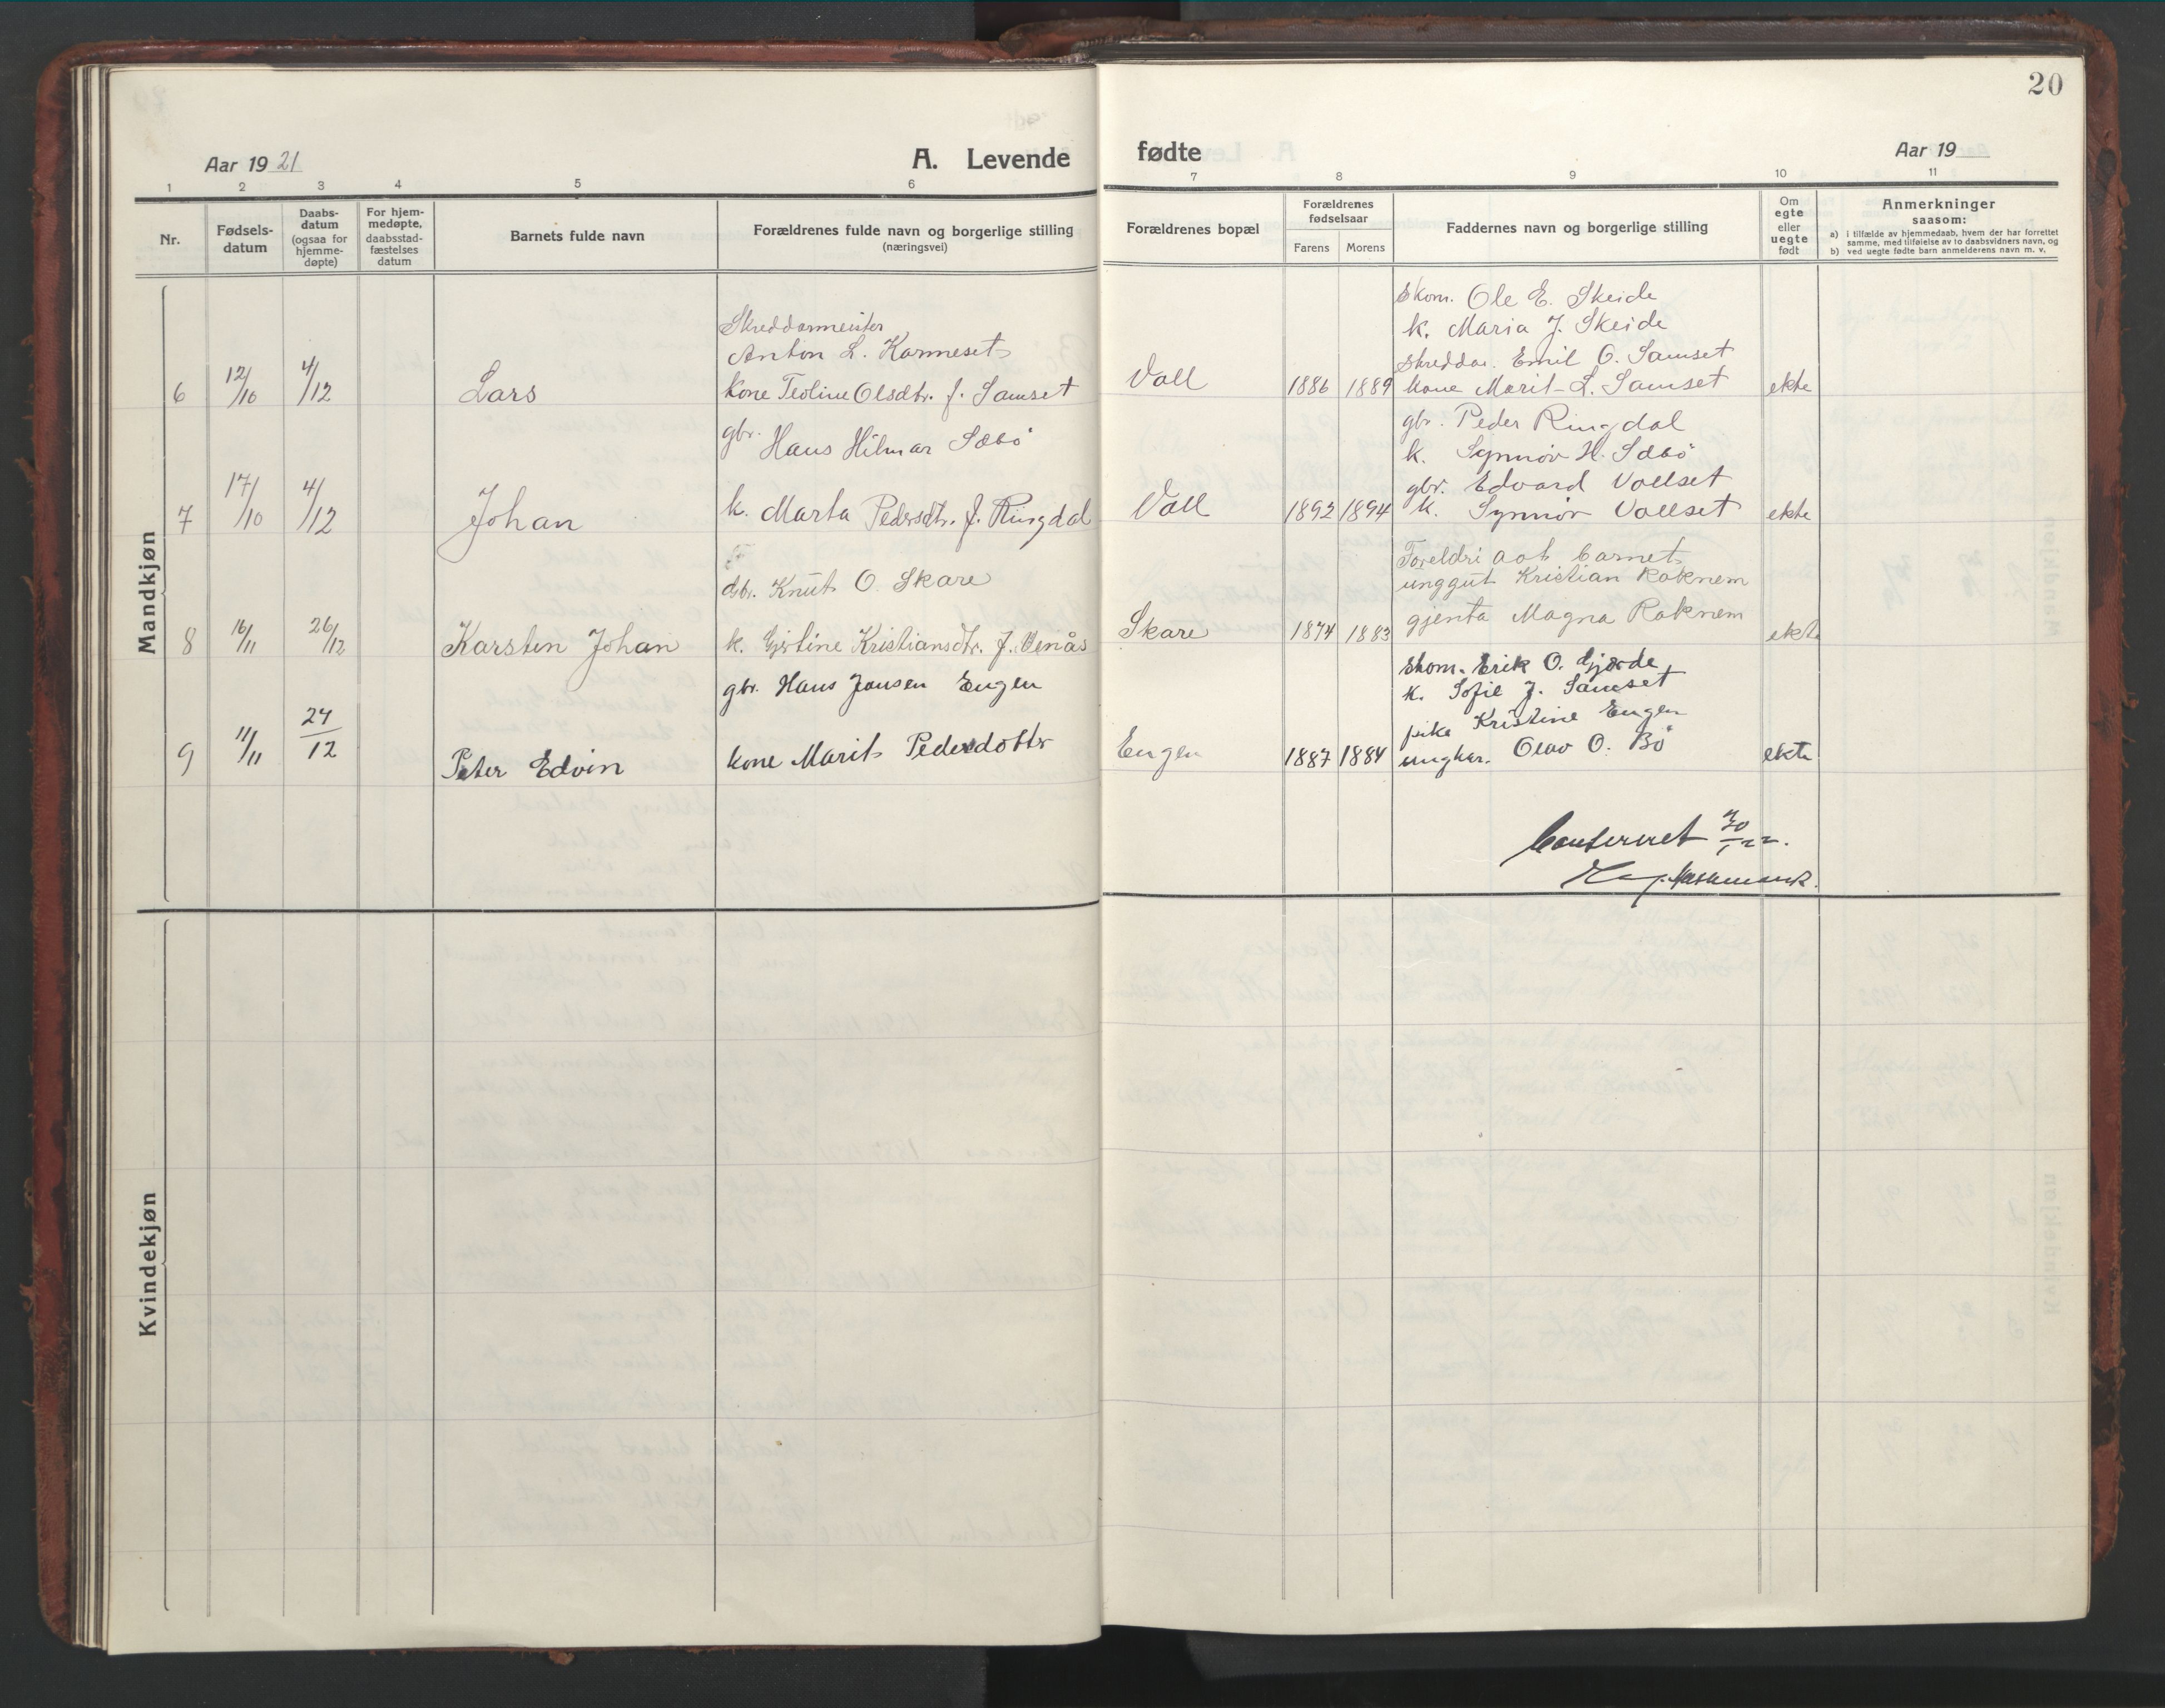 20
Aar 1921
A. Levende
fødte
Aar 19
1 2 3 4 5 6 7 8 9 10 11
Nr.
Fødsels-
datum
Daabs-
datum
(ogsaa for
hjemme-
døpte)
For hjem-
medøpte,
daabsstad-
fæstelses
datum
Barnets fulde navn
Forældrenes fulde navn og borgerlige stilling
(næringsvei)
Forældrenes bopæl
Forældrenes
fødselsaar
Farens Morens
Faddernes navn og borgerlige stilling
Om
egte
eller
uegte
født
Anmerkninger
saasom:
a) i tilfælde av hjemmedaab, hvem der har forrettet
samme, med tilføielse av to daabsvidners navn, og
b) ved uegte fødte barn anmelderens navn m. v.
Mandkjøn
6 12/10 4/12 Lars
Skreddarmeister
Anton L. Karmeset
kone Teoline Olsdtr. f. Samset
Vall 1886 1889
Skom. Ole E. Skeide
k. Maria J. Skeide
skreddar. Emil O. Samset
kone Marit L. Samset
ekte
7 17/10 4/12 Johan
gbr. Hans Hilmar Sæbö
k. Marta Pedersdtr. f. Ringdal
Vall 1892 1894
gbr. Peder Ringdal
k. Synnöv H. Sæbö
gbr. Edvard Vallset
k. Synnöv Vallset
ekte
8 16/11 26/12 Karsten Johan
gbr. Knut O. Skare
k. Gjertine Kristiansdtr. f. Venås
Skare 1874 1883
Foreldri aat barnet
unggut Kristian Raknem
gjenta Magna Raknem
ekte
9 11/11 24/12 Peter Edvin
gbr. Hans Jansen Engen
kone Marit Pedersdotter
Engen 1887 1884
skom. Erik O. Gjærde
k. Sofie J. Samset
pike Kristine Engen
ungkar. Olav O. Bö
ekte
Kvindekjøn